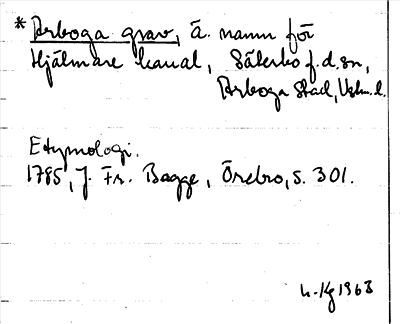 * Arboga grav, ä. namn för
Hjälmare kanal, Säterbo f.d. sn,
Arboga stad, Vstm. l.
Etymologi.
1785, J. Fr. Bagge, Örebro, s. 301.
1968